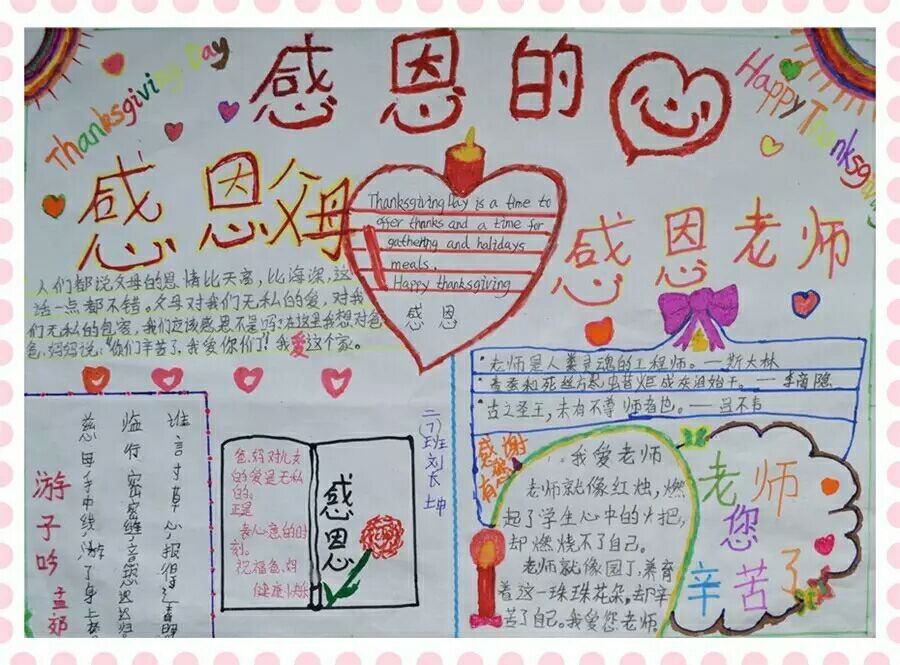 感恩的
Thanksgiving Day
Happy Thanksgiving Day
感恩父母
Thanksgiving Day is a time to
offer thanks and a time for
gathering and halidays
meals.
Happy thanksgiving
感恩
感恩老师
人们都说父母的恩情比天高，比海深，这
话一点都不错。父母对我们无私的爱，对我
们无私的包容，我们应该感恩不是吗？在这里我想对爸
爸、妈妈说：“你们辛苦了，我爱你们了！我爱这个家。
老师是人类灵魂的工程师。——斯大林
春蚕到死丝方尽 蜡炬成灰泪始干。——李商隐
古之圣王，未有不尊师者也。——吕不韦
游子吟 孟郊
慈母手中线，游子身上
临行密密缝 意恐迟迟归
谁言寸草心 报得三春晖
爸、妈对儿女
的爱是无私
的。
正是
表心意的时
刻。
祝福爸、妈
健康快乐
感恩
二(7)班 刘长坤
感谢
有您
我爱老师
老师就像红烛，燃
起了学生心中的火把，
却燃烧不了自己。
老师就像园丁，养育
着这一珠珠花朵，却辛
苦了自己。我爱您老师.
老师
您
辛苦了